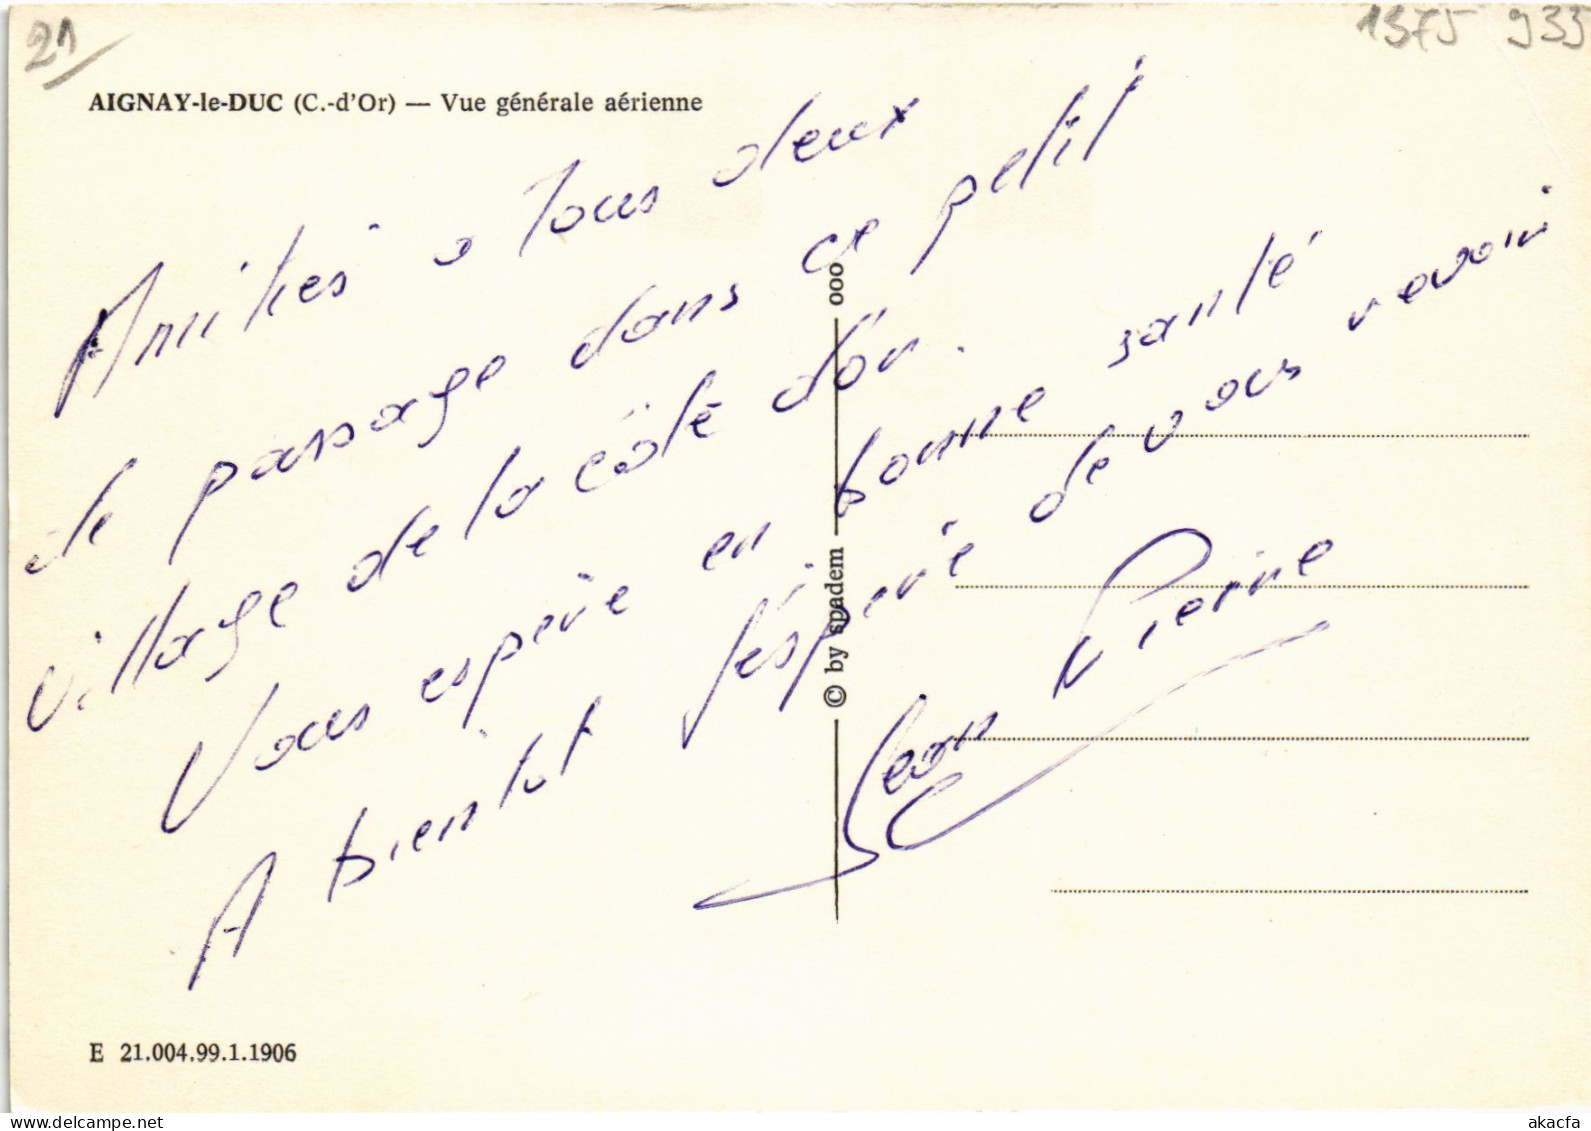 21
1375 933
AIGNAY-le-DUC (C.-d'Or) — Vue générale aérienne
Amitiés a tous deux
de passage dans ce petit
village de la côte d'or.
Vous espère en bonne santé
A bientot j'éspère de vous revoir
Jean Pierre
© by spadem ooo
E 21.004.99.1.1906
www.delcampe.net
akacfa